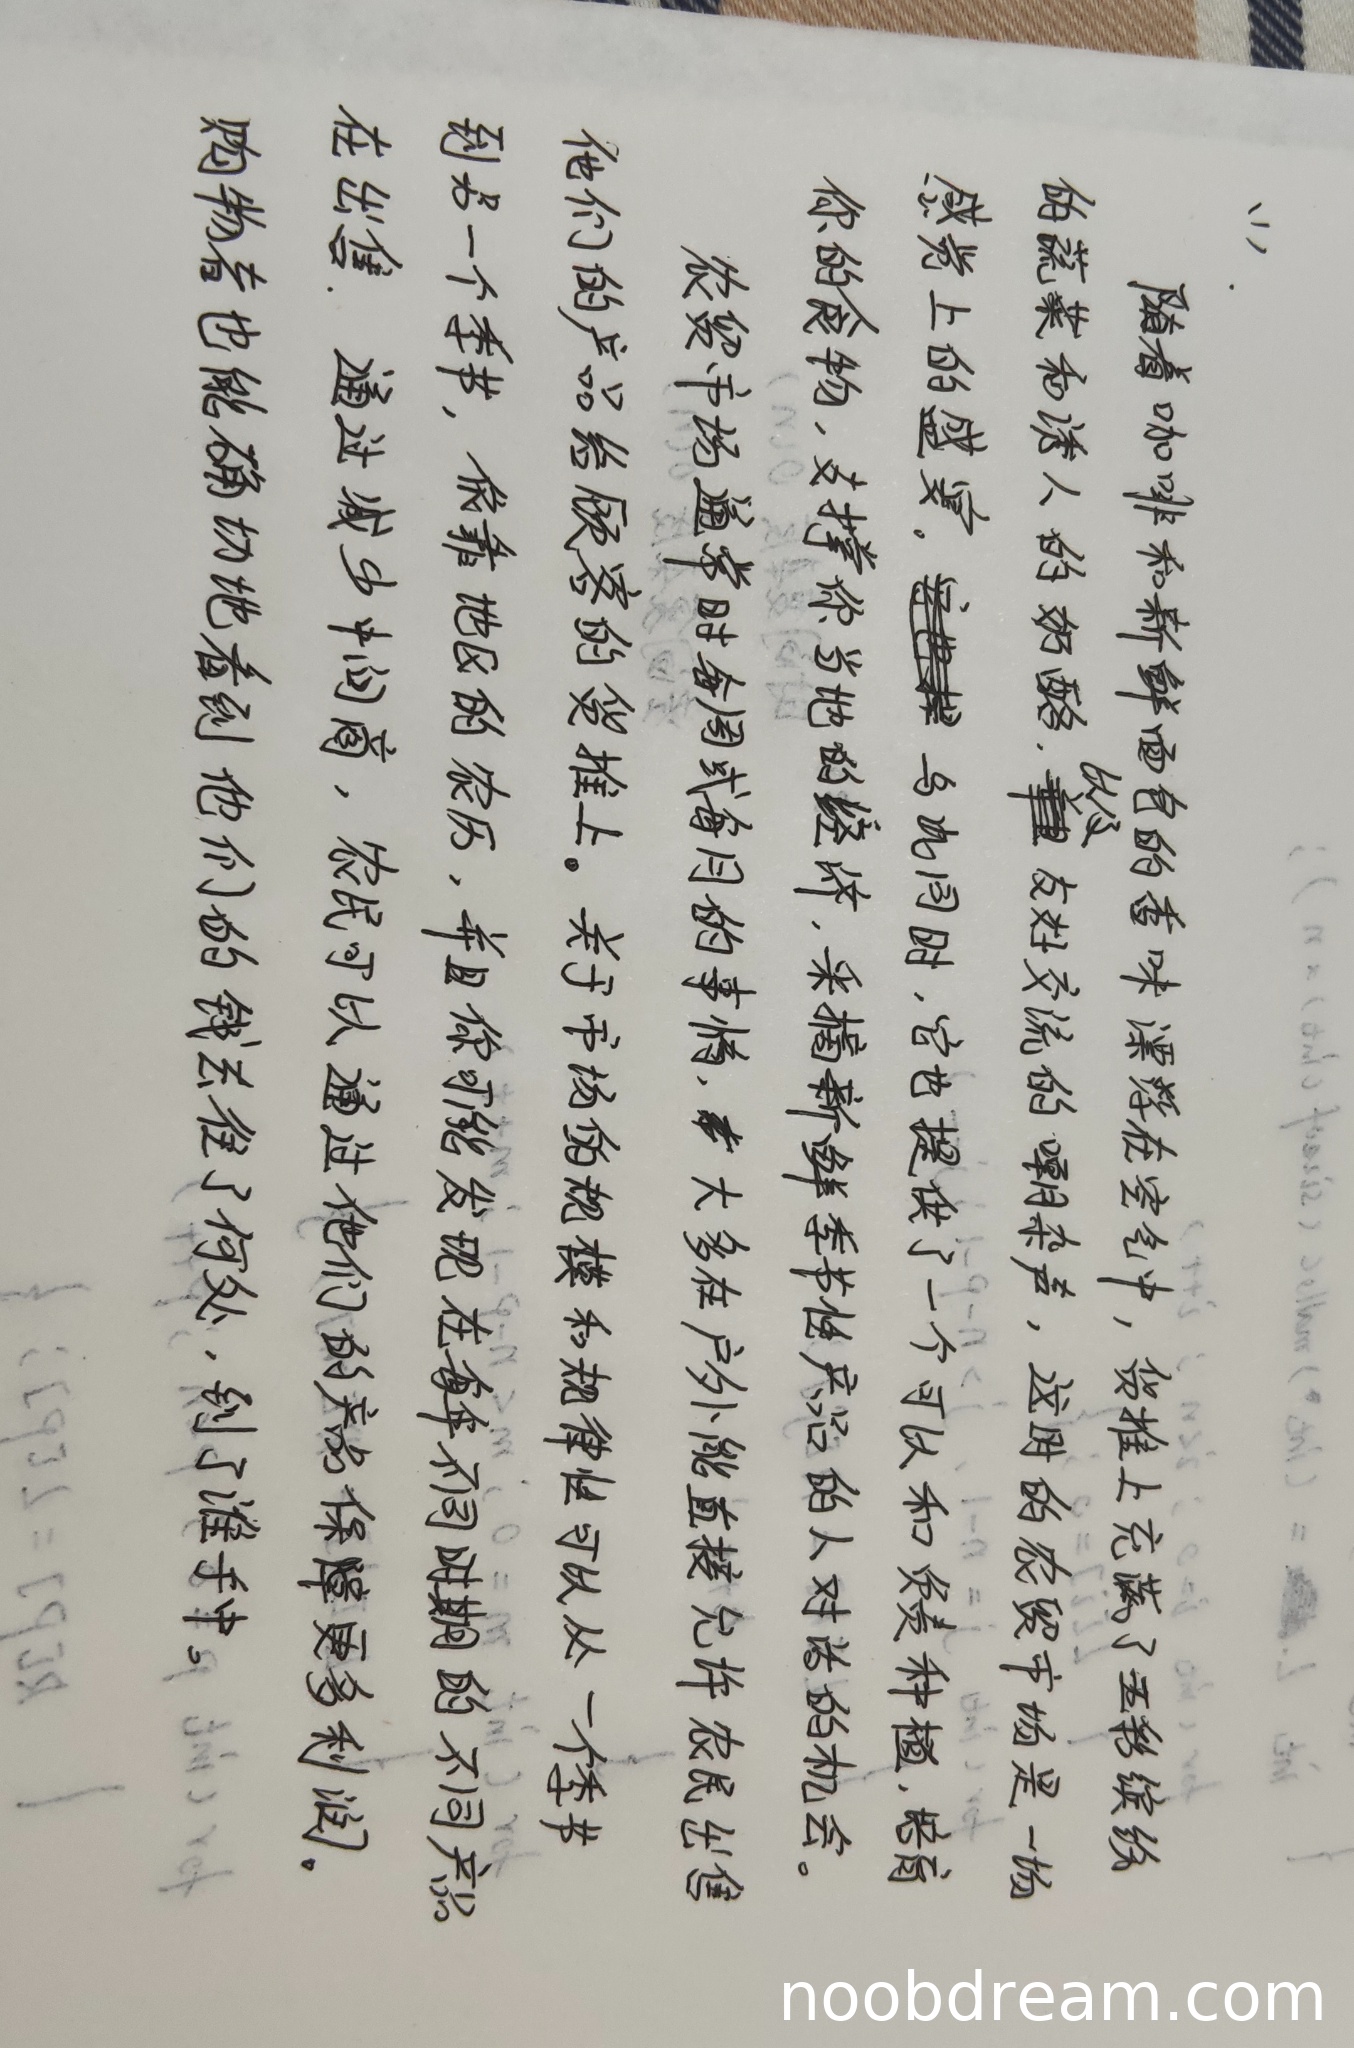 随着咖啡和新鲜面包的香味漂浮在空气中，货摊上充满了五彩缤纷
的蔬菜和诱人的奶酪，以及友好交流的嘲杂声，这用的农贸市场是一场
感觉上的盛宴。与此同时，它也提供了一个可以和负责种植，培育
你的食物，支撑你当地的经济，采摘新鲜季节性产品的人对话的机会。
农贸市场通常时每周或每月的事情，大多在户外能直接允许农民出售
他们的产品给顾客的货摊上。关于市场的规模和规律性可以从一个季节
到另一个季节，依靠地区的农历，并且你可能发现在每年不同时期的不同产品
在出售. 通过减少中间商，农民可以通过他们的产品保障更多利润。
购物者也能确切地看到他们的钱去往了何处，到了谁手中。
noobdream.com